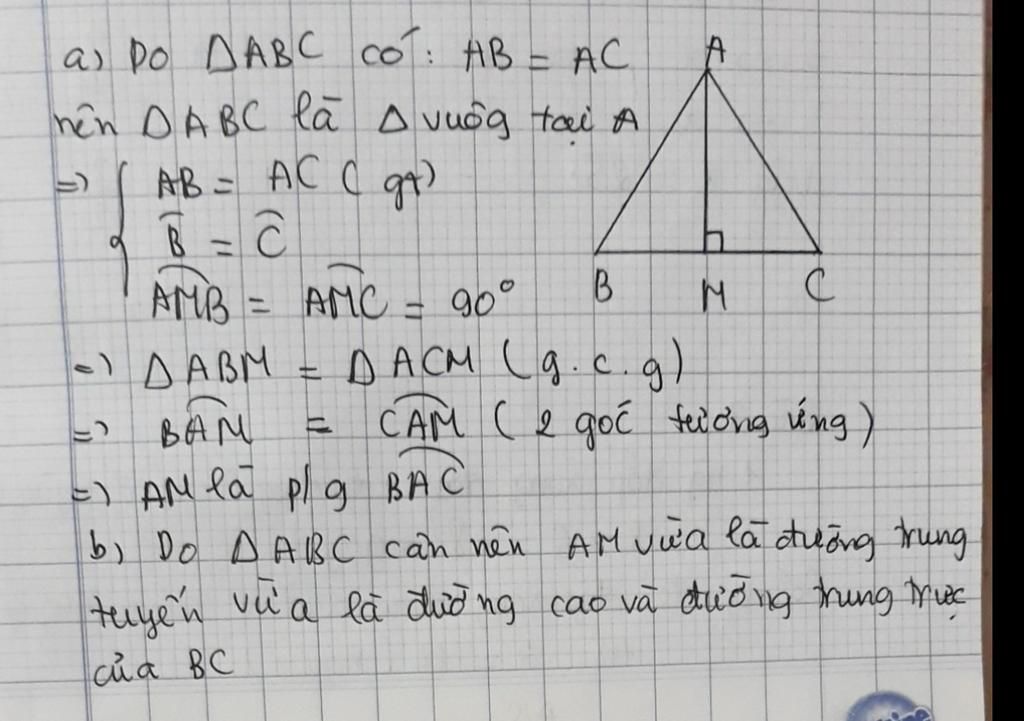 a) Do ΔABC có: AB = AC
nên ΔABC là Δ vuôg tại A
=> { AB = AC (gt)
B̂ = Ĉ
AMB = AMC = 90°
=> ΔABM = ΔACM (g.c.g)
=> BAM = CAM (2 góc tương ứng)
=> AM là p/g BAC
b) Do ΔABC cân nên AM vừa là đường trung
tuyến vừa là đường cao và đường trung trực
của BC
A
B M C